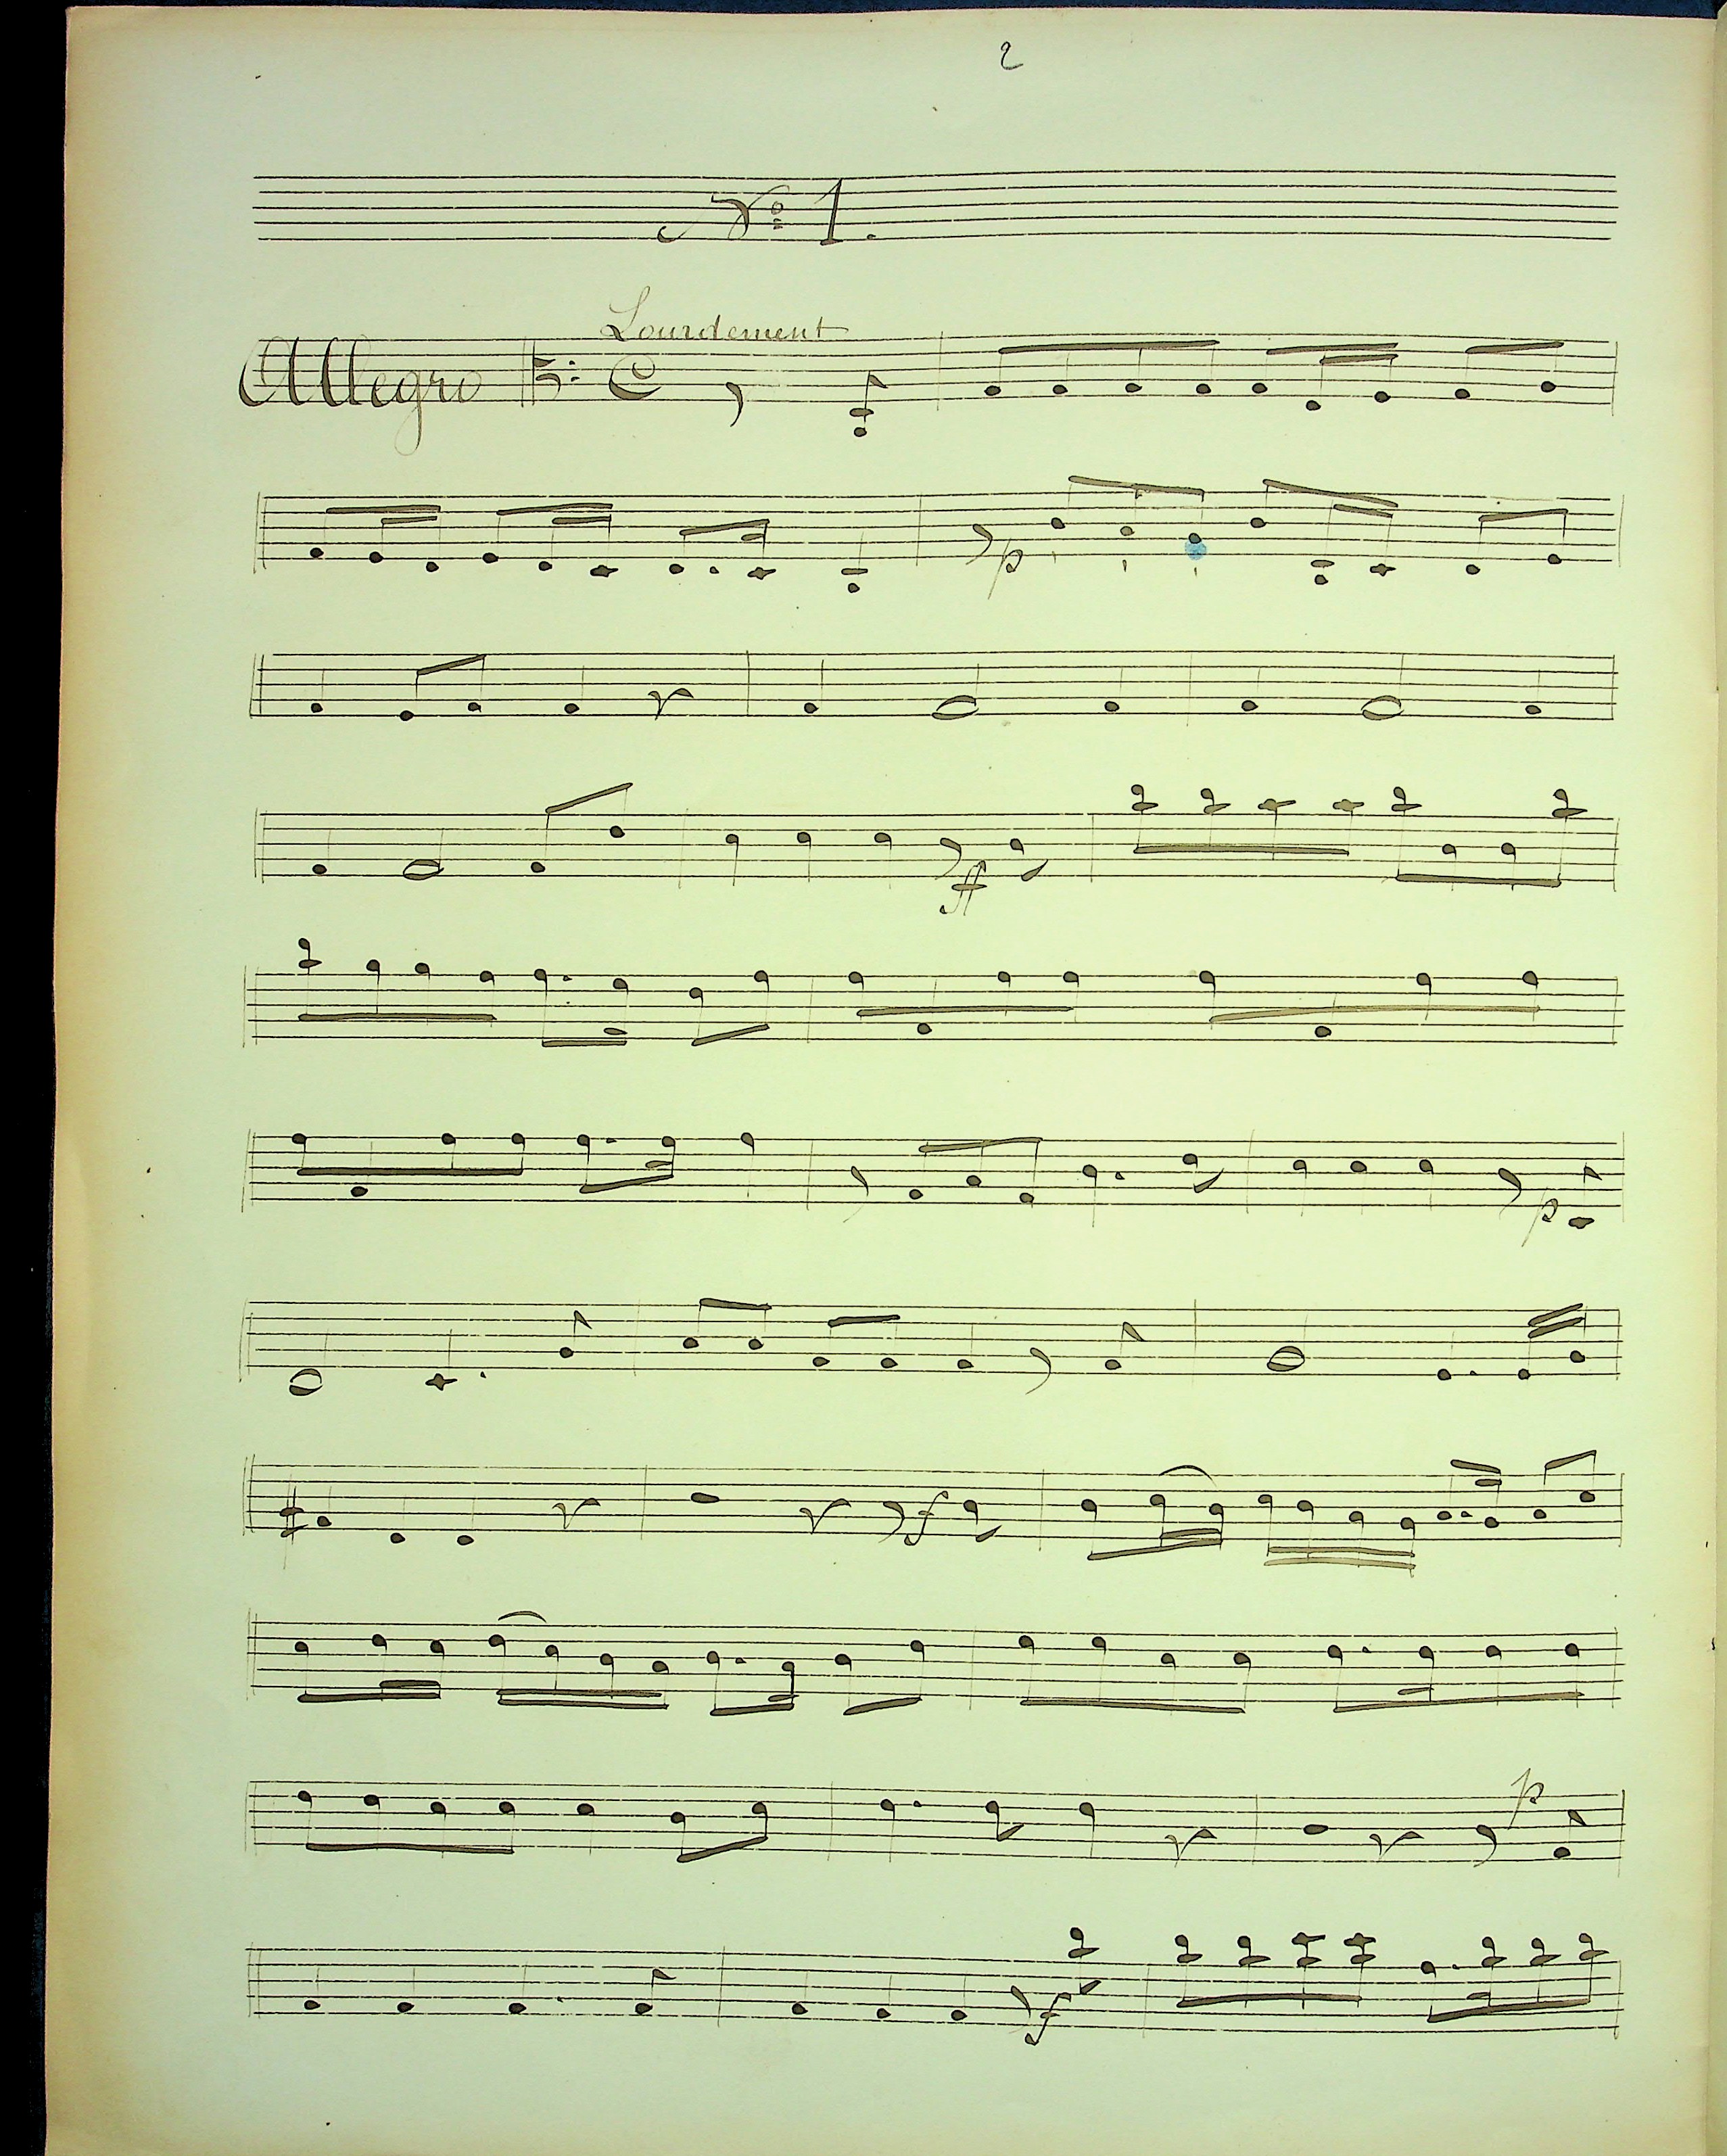 2
Nº 1.
Lourdement
Allegro
p
ff
p
f
p
f